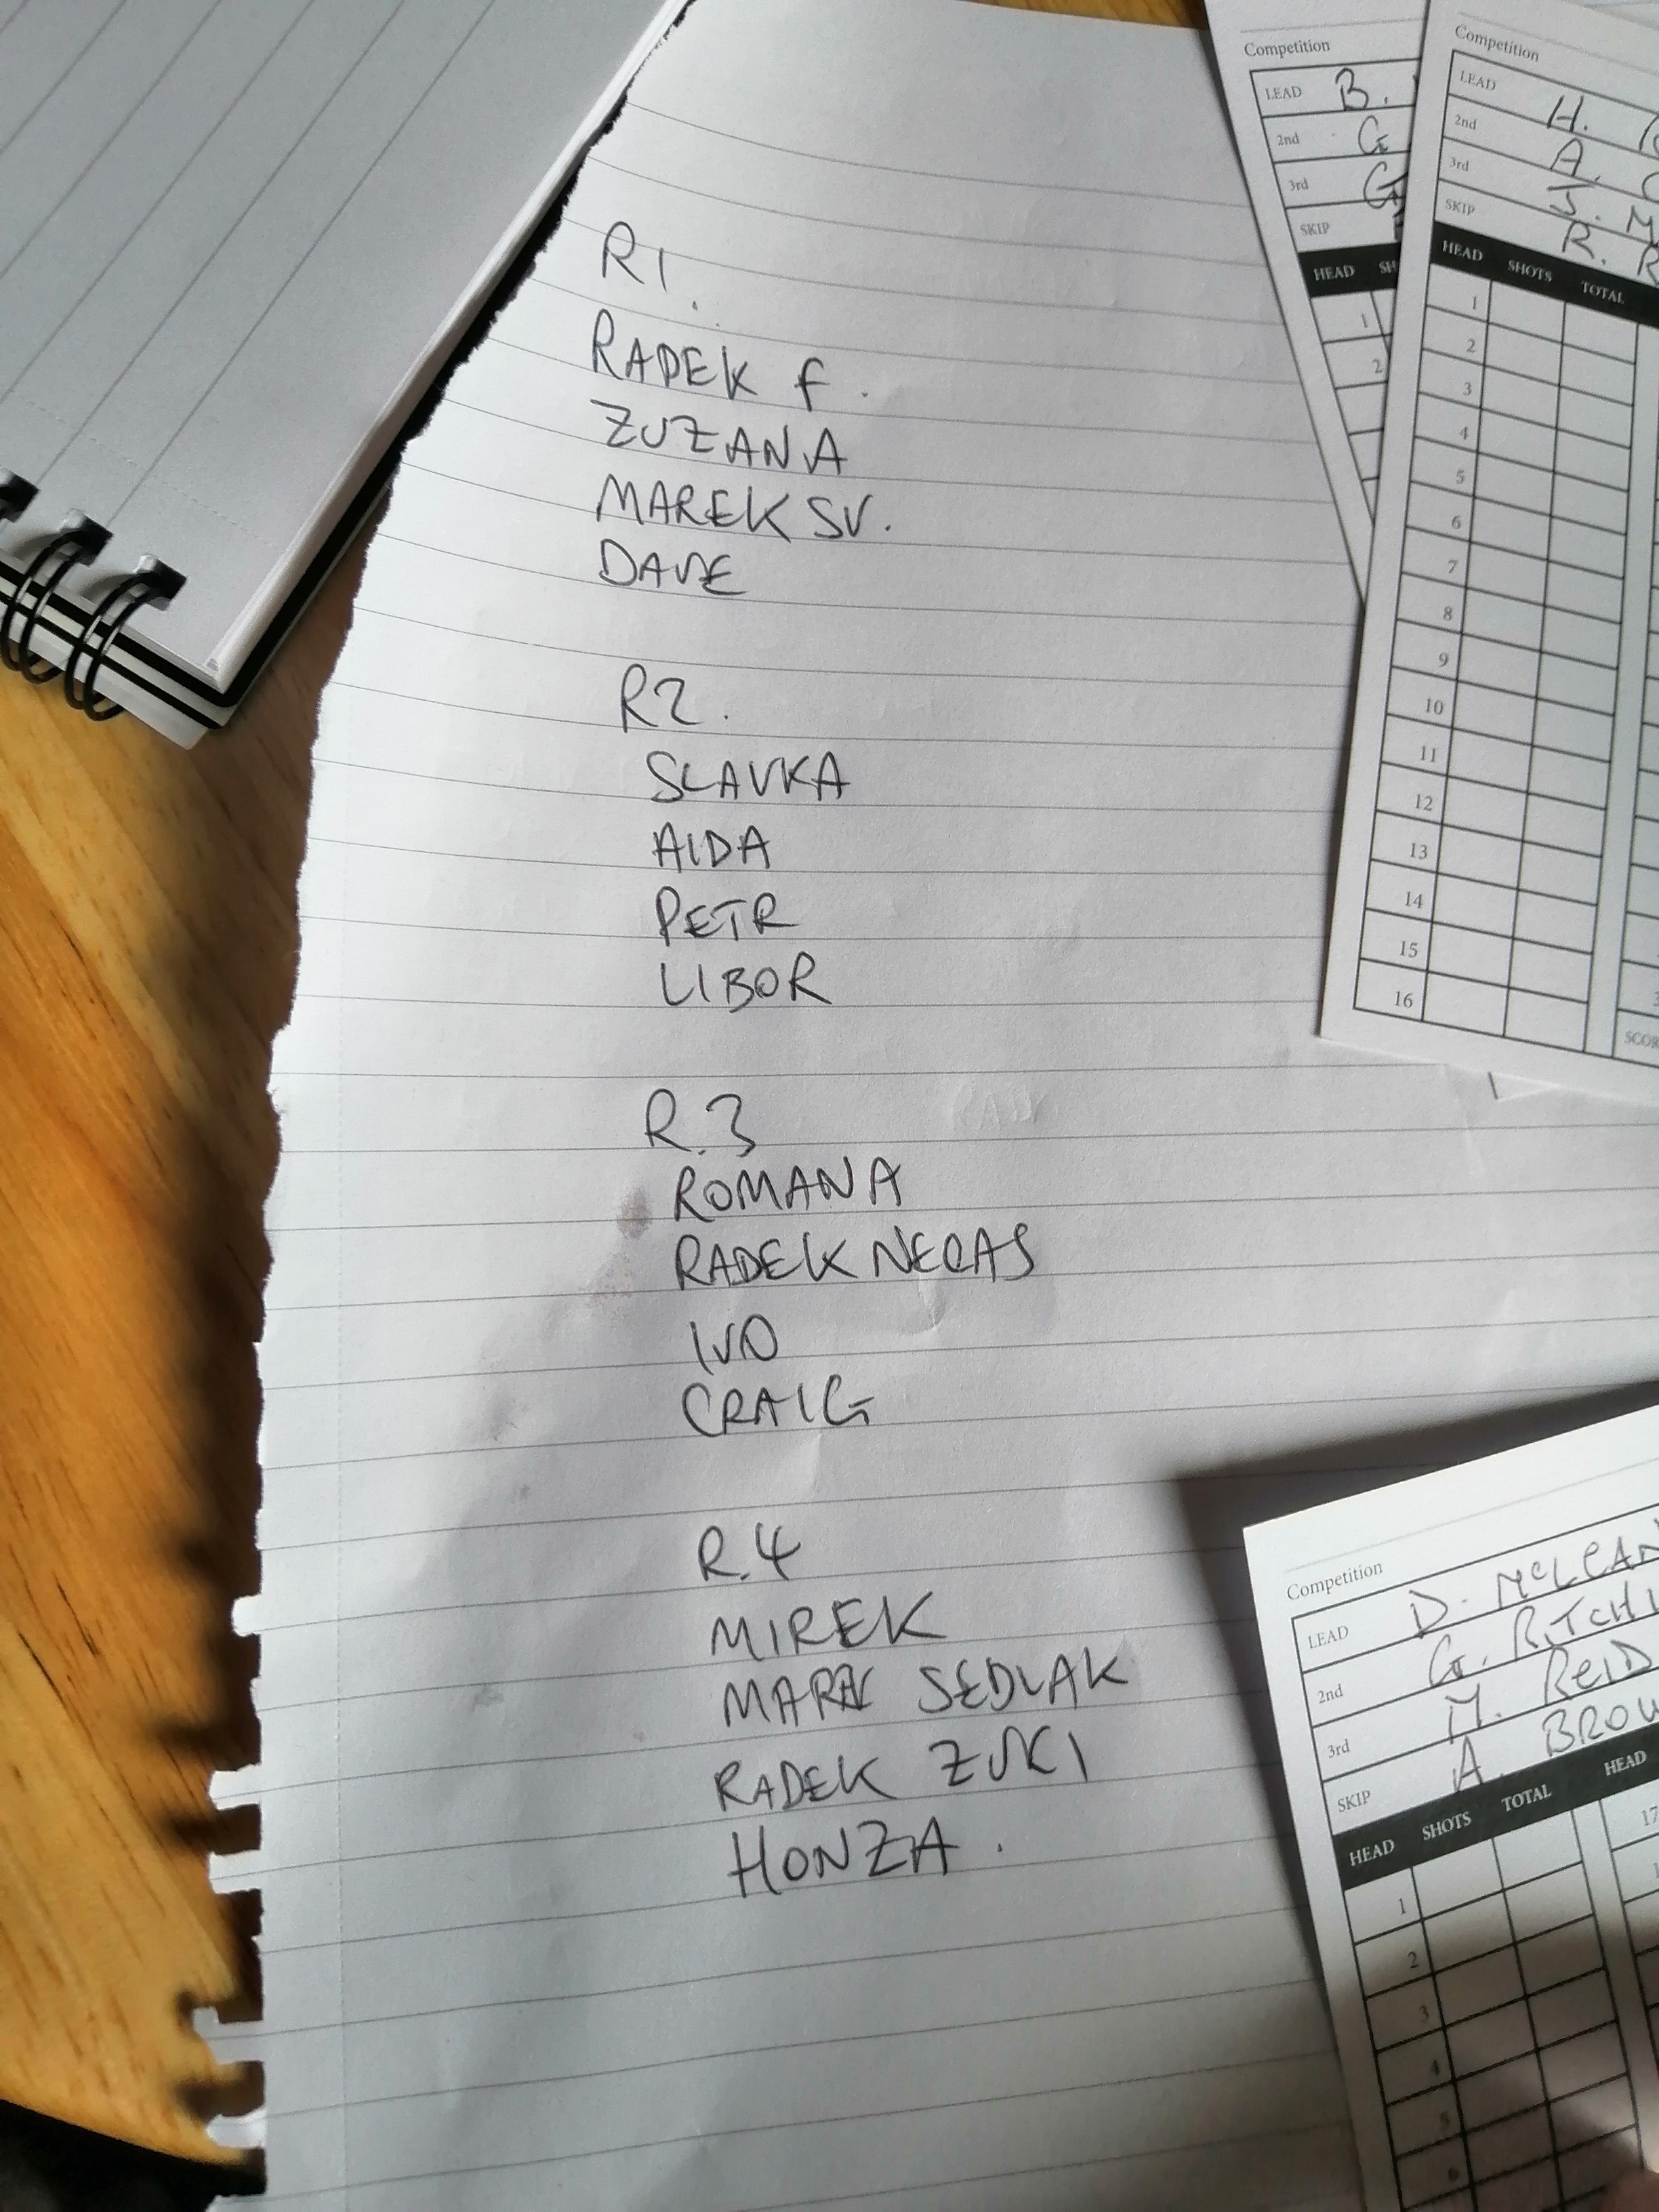 R1.
RADEK F.
ZUZANA
MAREK SV.
DAVE
R2.
SLAVKA
AIDA
PETR
LIBOR
R.3
ROMANA
RADEK NECAS
IVO
CRAIG
R.4
MIREK
MAREK SEDLAK
RADEK ZUKI
HONZA.
Competition
LEAD B.
2nd G
3rd G
SKIP
HEAD SH
1
2
Competition
LEAD H.
2nd A.
3rd J. M
SKIP R. R
HEAD SHOTS TOTAL
1
2
3
4
5
6
7
8
9
10
11
12
13
14
15
16
SCOR
Competition
LEAD D. McLEAN
2nd G. RITCHI
3rd M. REID
SKIP A. BROW
HEAD SHOTS TOTAL HEAD
1 17
2
3
4
5
6